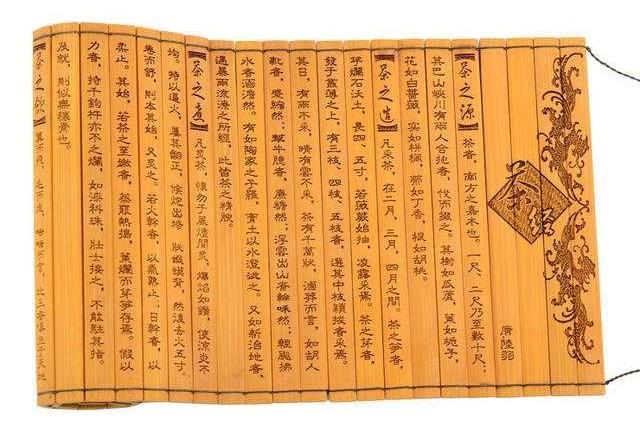 茶經
唐陸羽
【茶之源】茶者,南方之嘉木也。一尺、二尺乃至數十尺;
其巴山峽川有兩人合抱者,伐而掇之。其樹如瓜蘆,葉如梔子,
花如白薔薇,实如栟櫚,蒂如丁香,根如胡桃。
【茶之造】凡采茶,在二月、三月、四月之間。茶之笋者,
芽爛石沃土,長四、五寸,若薇蕨始抽,凌露采焉。茶之芽者,
發于叢薄之上,有三枝、四枝、五枝者,選其中枝穎拔者采焉。
其日,有雨不采,晴有雲不采。茶有千萬狀,鹵莽而言,如胡人
靴者,蹙縮然;犎牛臆者,廉襜然;浮雲出山者輪囷然;輕飈拂
水者涵澹然。有如陶家之子羅,膏土以水澄泚之。又如新治地者,
遇暴雨流潦之所經,此皆茶之精腴。
【茶之煮】凡炙茶,慎勿于風燼間炙,熛焰如鑽,使涼炎不
均。特以逼火,屢其翻正,候炮出培塿狀蟆背,然後去火五寸。
卷而舒,則本其始,又炙之。若火幹者,以氣熟止;日幹者,以
柔止。其始,若茶之至嫩者,蒸罷熱搗,葉爛而芽笋存焉。假以
力者,持千鈞杵亦不之爛,如漆科珠,壯士接之,不能駐其指。
及就,則似無穰骨也。
茶之飲 翼而飛,毛而走,呿而言,此三者俱生于天地